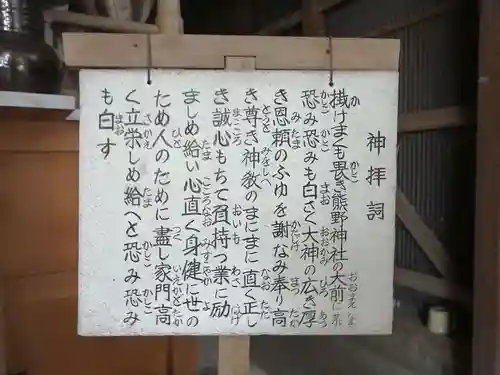 神拝詞
掛けまくも畏き熊野神社の大前に
恐み恐みも白さく大神の広き厚
き恩頼のふゆを謝なみ奉り高
き尊き神教のまにまに直く正し
き誠心もちて負持つ業に励
ましめ給い心直く身健に世の
ため人のために盡し家門高
く立栄しめ給へと恐み恐み
も白す